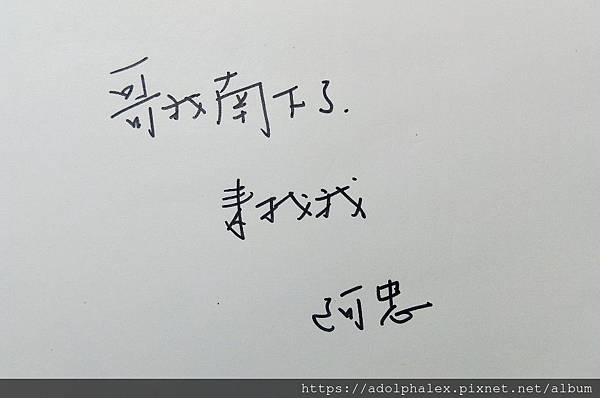 哥我南下了.
來找我
阿忠
https://adolphalex.pixnet.net/album